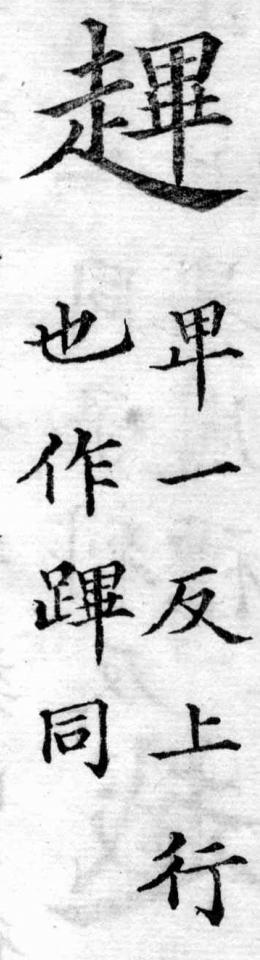 趩
卑一反上行
也作蹕同